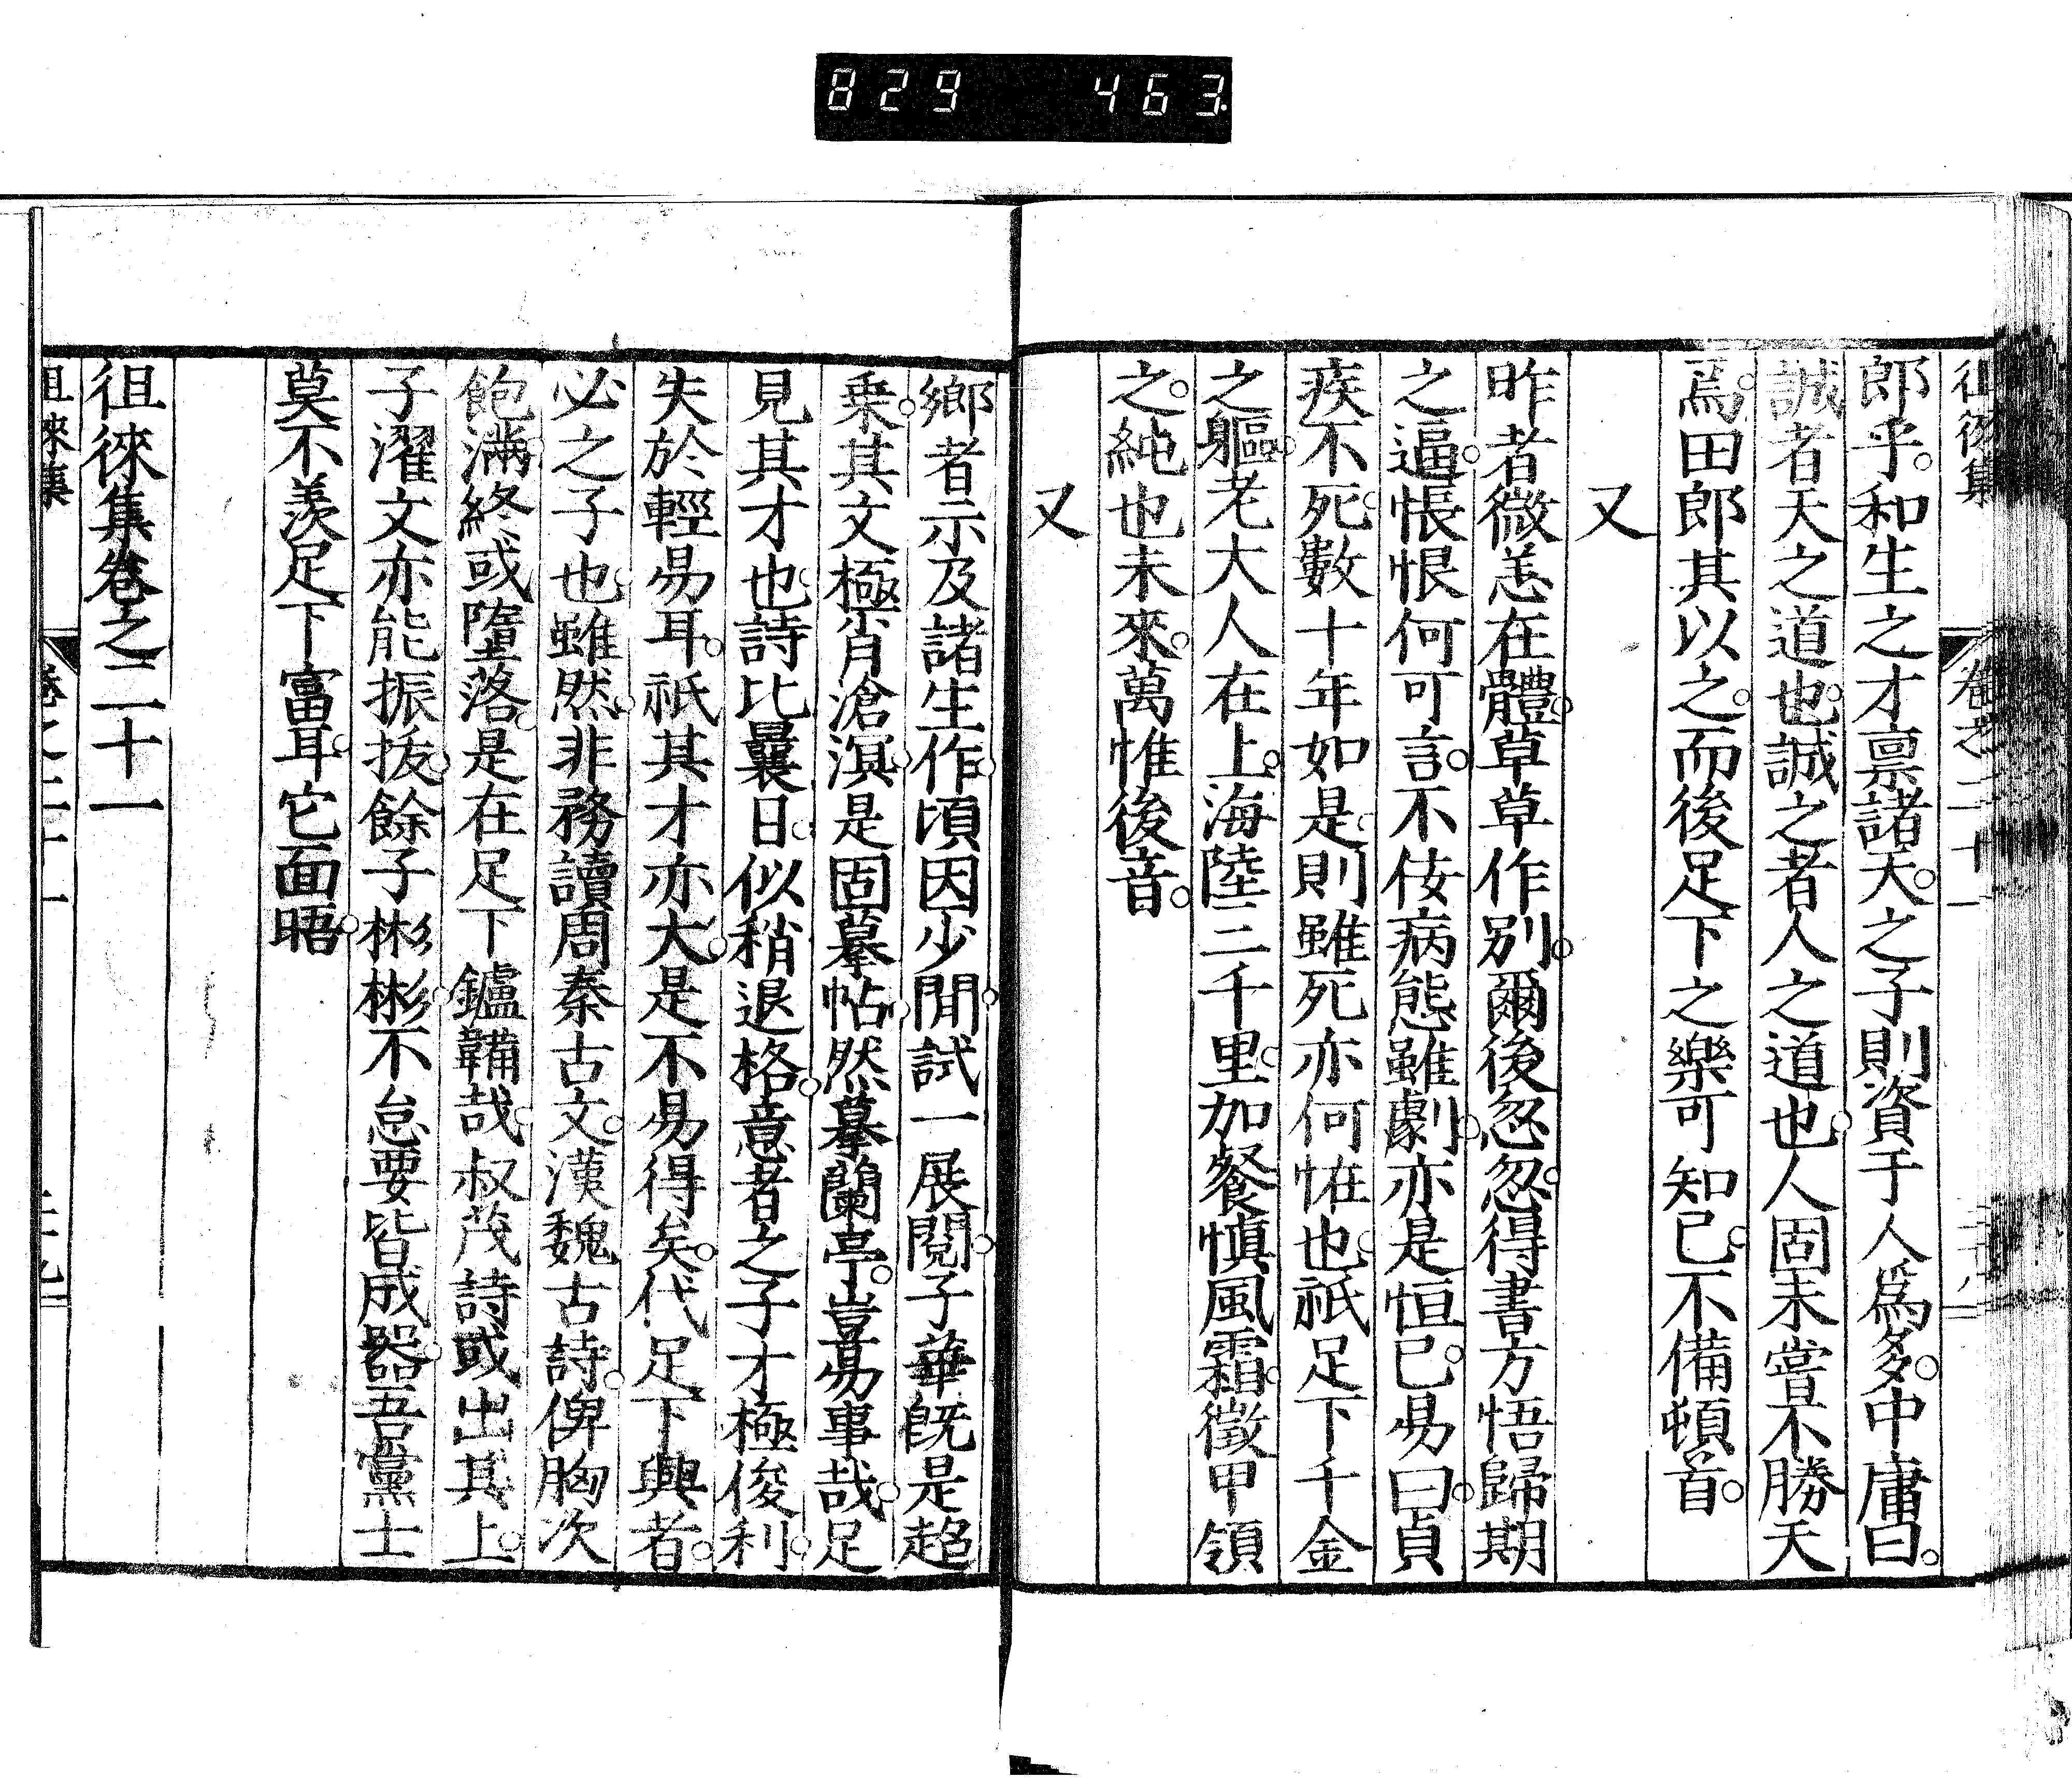 829 463
徂徠集 卷之二十一
郎乎。和生之才禀諸天。之子則資于人爲多。中庸曰。
誠者天之道也。誠之者人之道也。人固未嘗不勝天
焉。田郎其以之。而後足下之樂可知已。不備頓首。
又
昨者微恙在體。草草作別。爾後忽忽。得書方悟歸期
之逼。悵恨何可言。不佞病態雖劇。亦是恒已。易曰。貞
疾不死。數十年如是。則雖死亦何恠也。祇足下千金
之軀。老大人在上。海陸三千里。加餐愼風霜。徵甲領
之。純也未來。萬惟後音。
又
鄉者示及諸生作。頃因少閒。試一展閱。子華旣是超
乘。其文極肖滄溟。是固摹帖。然摹蘭亭。豈易事哉。足
見其才也。詩比曩日。似稍退格。意者之子才極俊利。
失於輕易耳。祇其才亦大。是不易得矣。代足下興者。
必之子也。雖然。非務讀周秦古文。漢魏古詩。俾胸次
飽滿。終或墮落。是在足下鑪韛哉。叔茂詩或出其上。
子濯文亦能振拔。餘子彬彬。不怠要皆成器。吾黨士
莫不羨足下富耳。它面晤。
徂徠集卷之二十一
徂徠集 卷之二十一 二十九